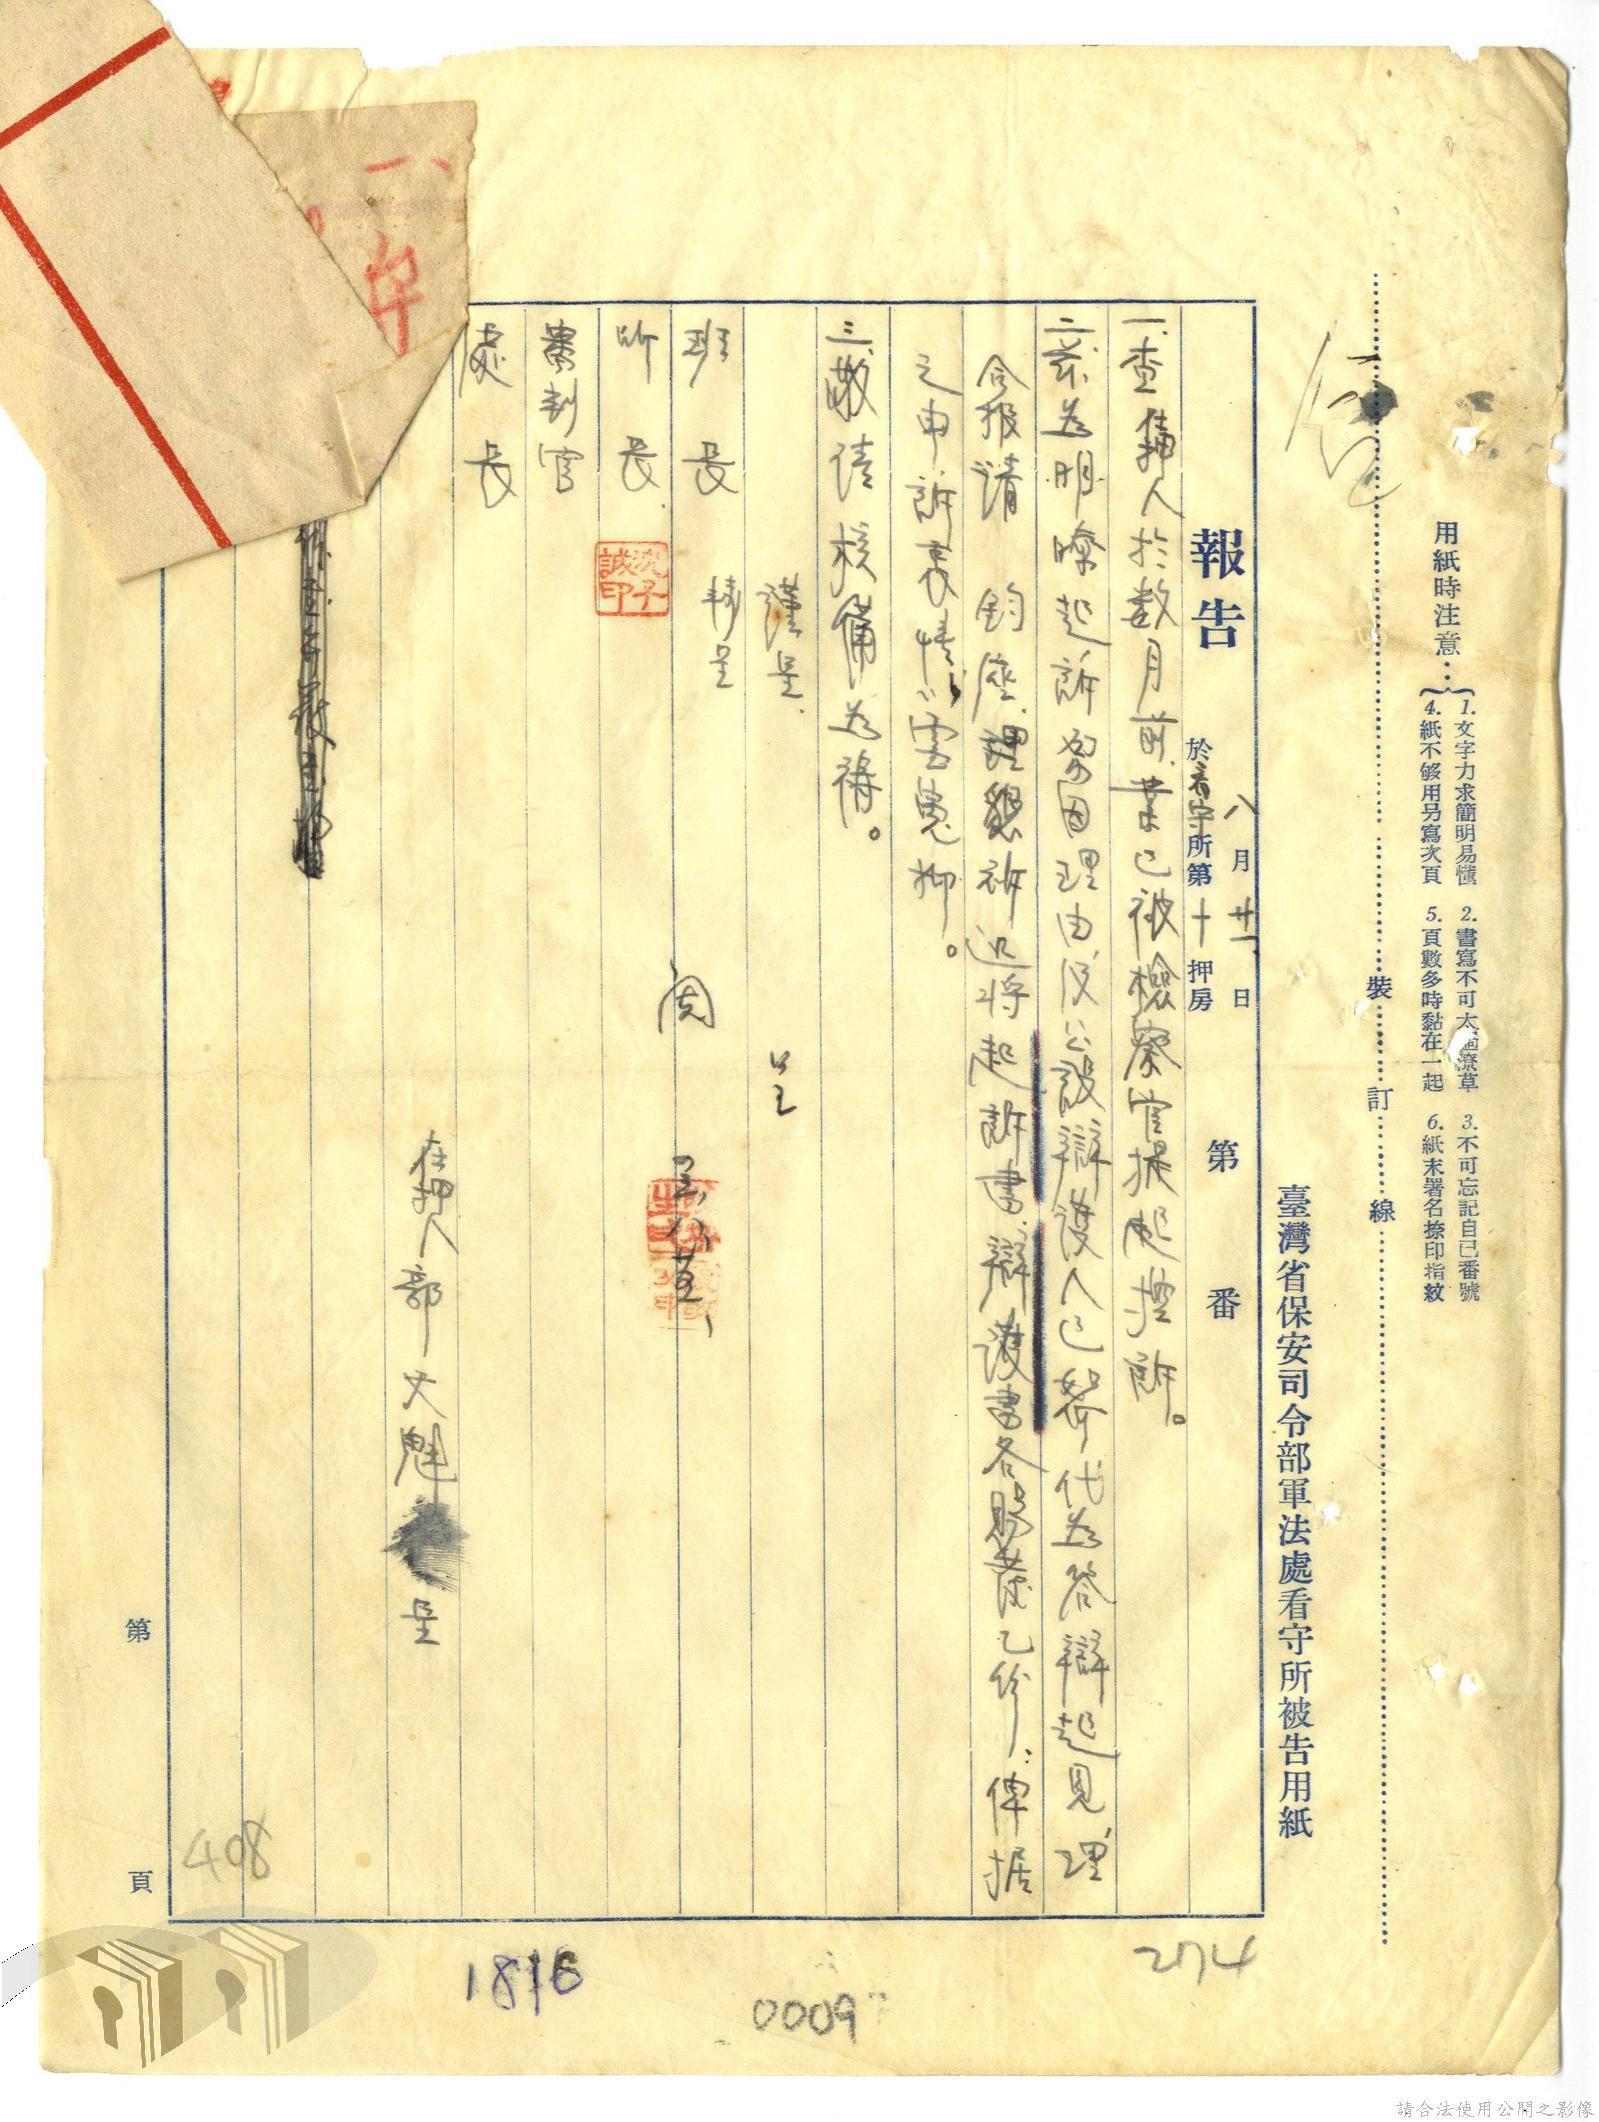 用紙時注意：
1.文字力求簡明易懂 2.書寫不可太過潦草 3.不可忘記自已番號
4.紙不够用另寫次頁 5.頁數多時黏在一起 6.紙末署名捺印指紋
裝 訂 線
臺灣省保安司令部軍法處看守所被告用紙
報告 八月廿一日 於看守所第十押房 第 番
一、查在押人於数月前業已被檢察官提起控訴。
二、茲為明瞭起訴原因理由及公設辯護人已如何代為答辯起見、理
合报請 鈞座、理懇祈迅將起訴書、辯護書各賜發乙份、俾据
之申訴衷情、雪冤抑。
三、敬請核備為禱。
謹呈
班長 轉呈
所長
沈子誠印
審判官
處長
在押人部大魁 呈
第 頁
408
274
1816
0009
請合法使用公開之影像